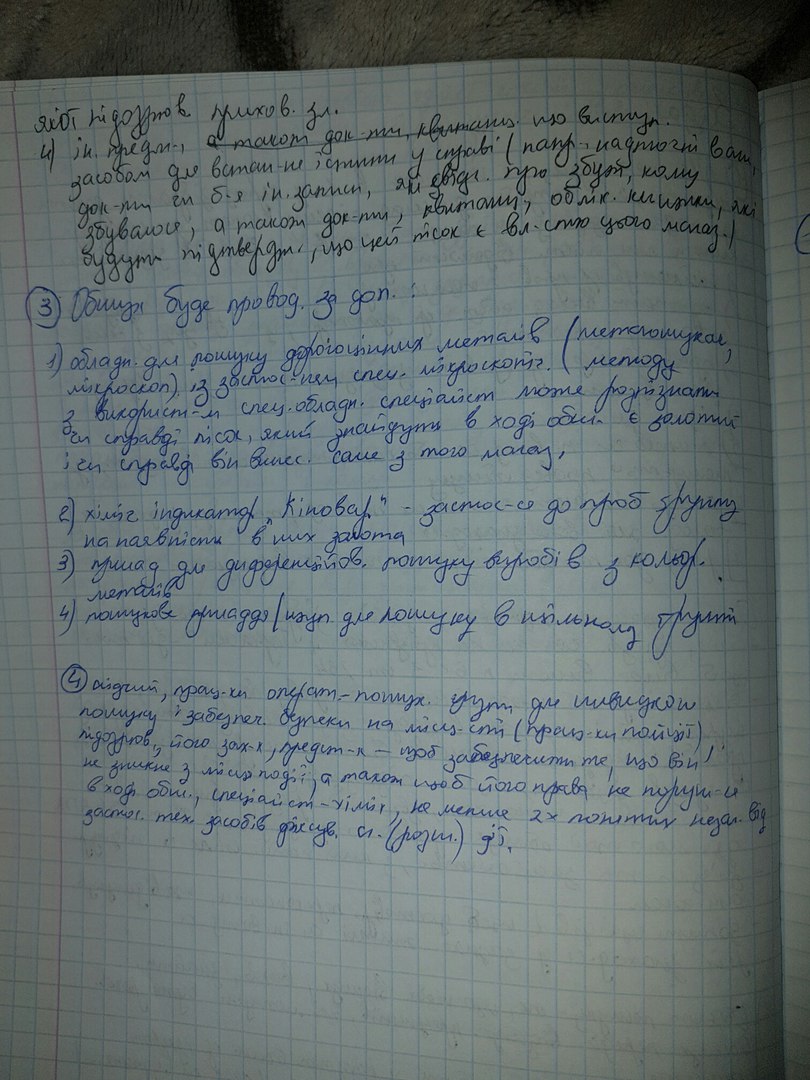 якої підозрюв. прихов. зл.
4) ін. предм-и, а також док-ти, квитанц. що виступ.
засобом для встан-не істини у справі (напр., надточні ваги,
док-ти чи б-я ін. записи, які свідч. про збут, кому
збувалося, а також док-ти, квитанц, облік. книжки, які
будуть підтверджу, що цей пісок є вл-стю цього магаз.)
3 Обшук буде провод. за доп.:
1) обладн. для пошуку дорогоцінних металів (металошукач,
мікроскоп) із застос-ням спец. мікроскопіч. (методу
з використ-м спец. обладн. спеціаліст може розпізнати
чи справді пісок, який знайдуть в ході обш. є золотий
і чи справді він винес. саме з того магаз,
2) хіміч індикатор „Кіновар" - застос-ся до проб грунту
на наявність в них золота
3) прилад для диференційов. пошуку виробів з кольор.
металів
4) пошукове приладдя/щуп. для пошуку в щільному грунті
4 слідчий, прац-ки операт.-пошук. групи для швидкого
пошуку і забезпеч. безпеки на місц-сті (прац-ки поліції),
підозрюв., його зах-к, предст-к — щоб забезпечити те, що він
не зникне з місця події, а також щоб його права не поруш-ся
в ході обш., спеціаліст-хімік, не менше 2х понятих незал. від
застос. тех. засобів фіксув. сл. (розш.) дії.